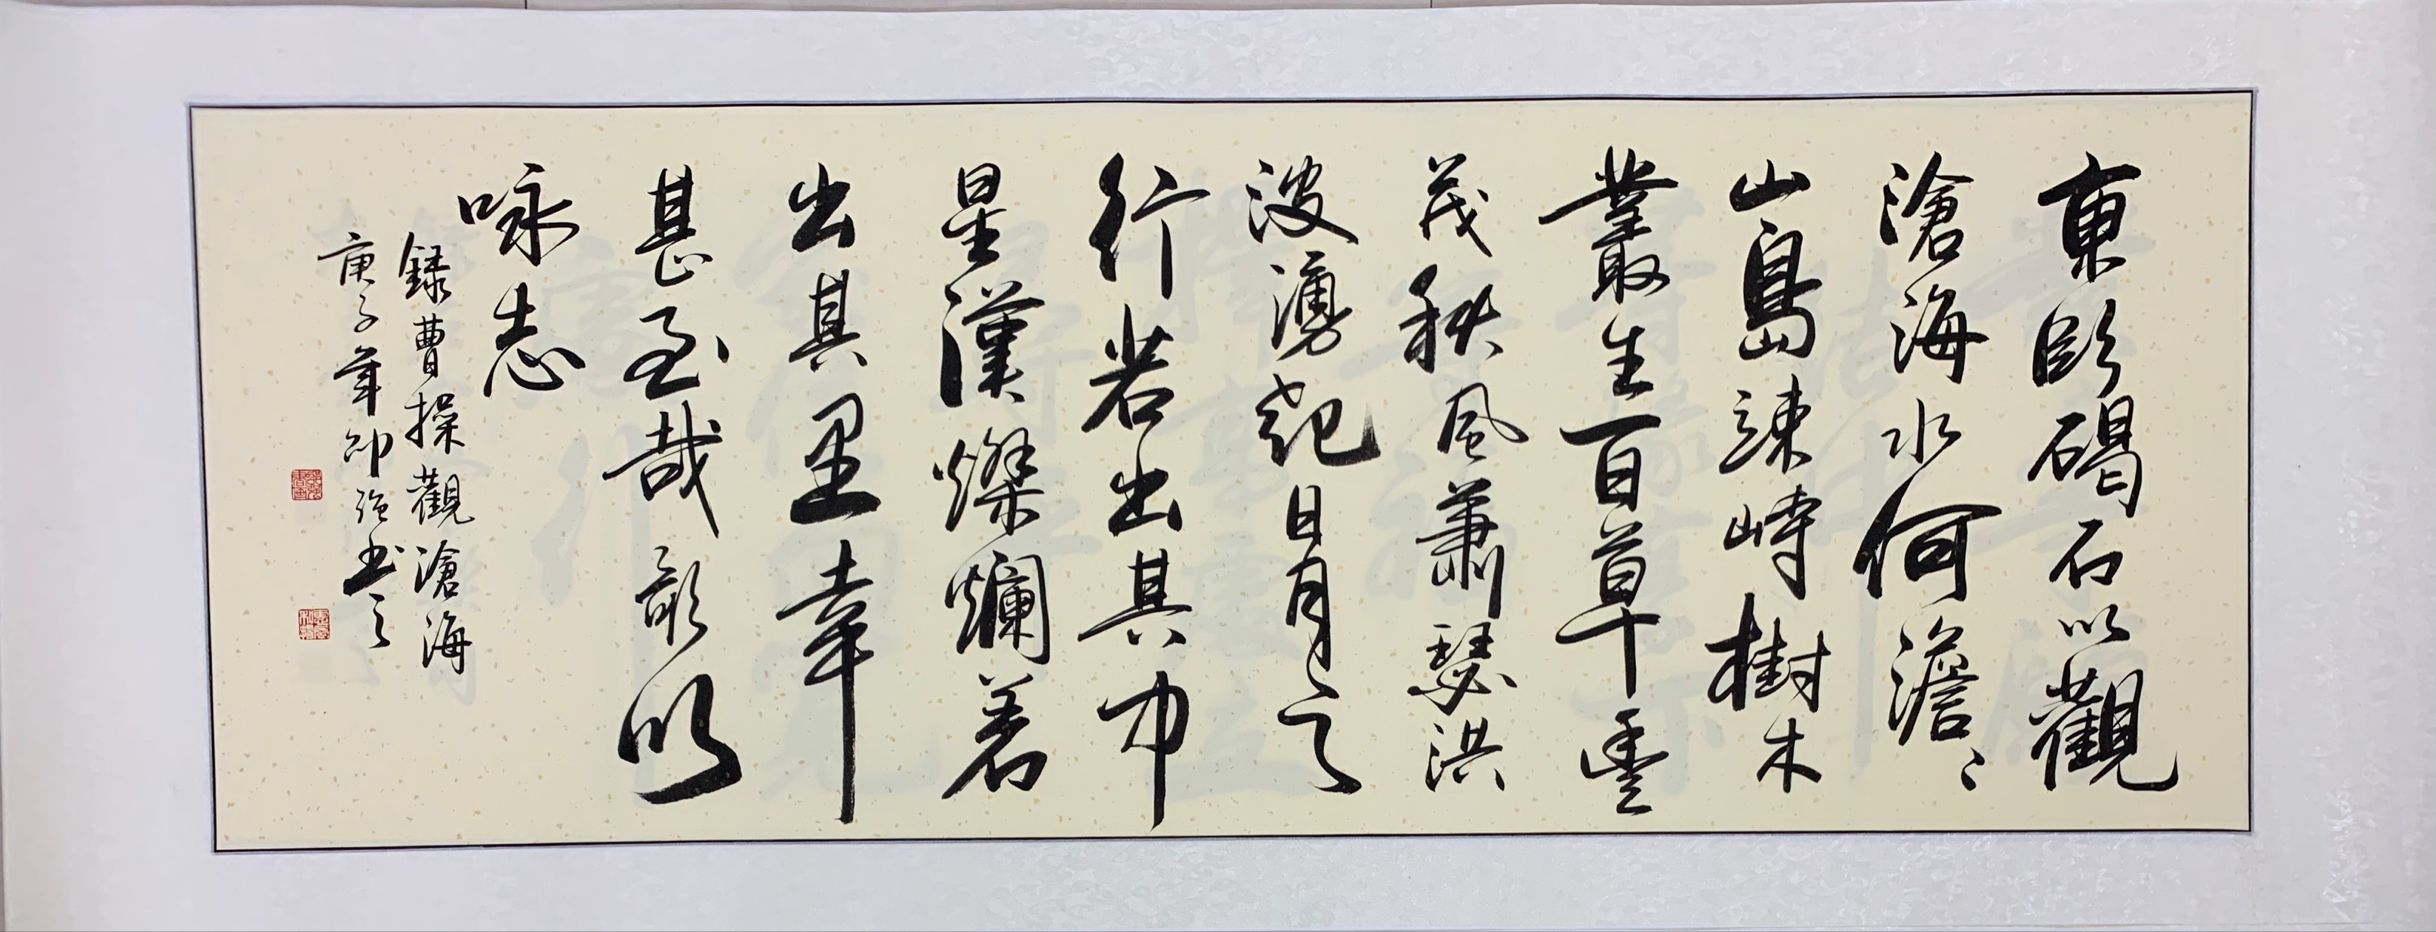 東臨碣石以觀
滄海水何澹〻
山島竦峙樹木
叢生百草豐
茂秋風蕭瑟洪
波湧起日月之
行若出其中
星漢燦爛若
出其里幸
甚至哉歌以
咏志
録曹操觀滄海
庚子年 强书之